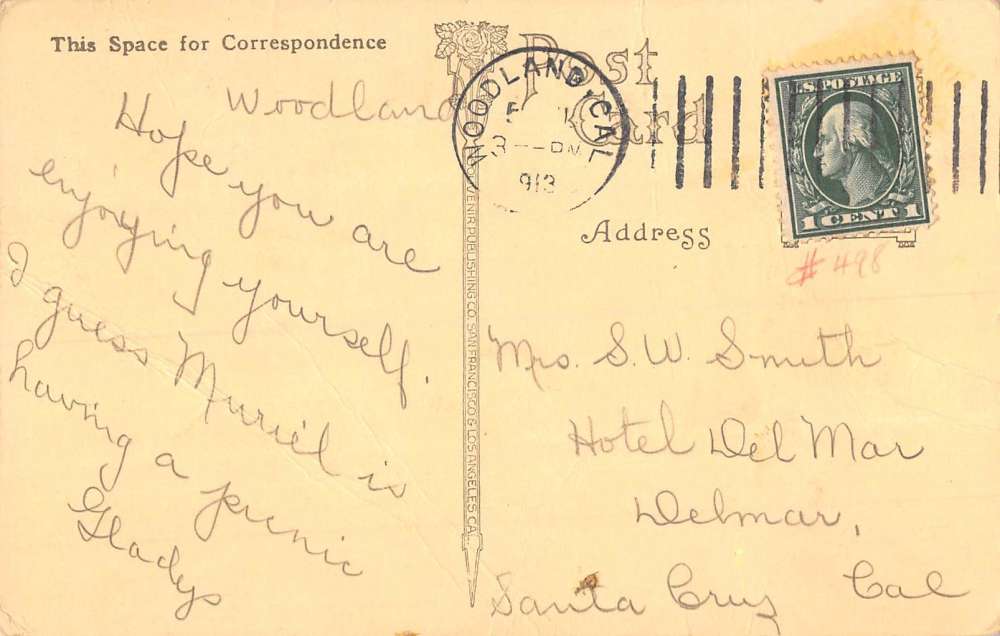 This Space for Correspondence
Post
Card
Woodland
Hope you are
enjoying yourself.
I guess Muriel is
having a picnic
Gladys
WOODLAND, CAL
3 PM
1913
U.S. POSTAGE
1 CENT 1
# 498
Address
Mrs. S. W. Smith
Hotel Del Mar
Delmar,
Santa Cruz Cal
SOUVENIR PUBLISHING CO. SAN FRANCISCO & LOS ANGELES CAL.